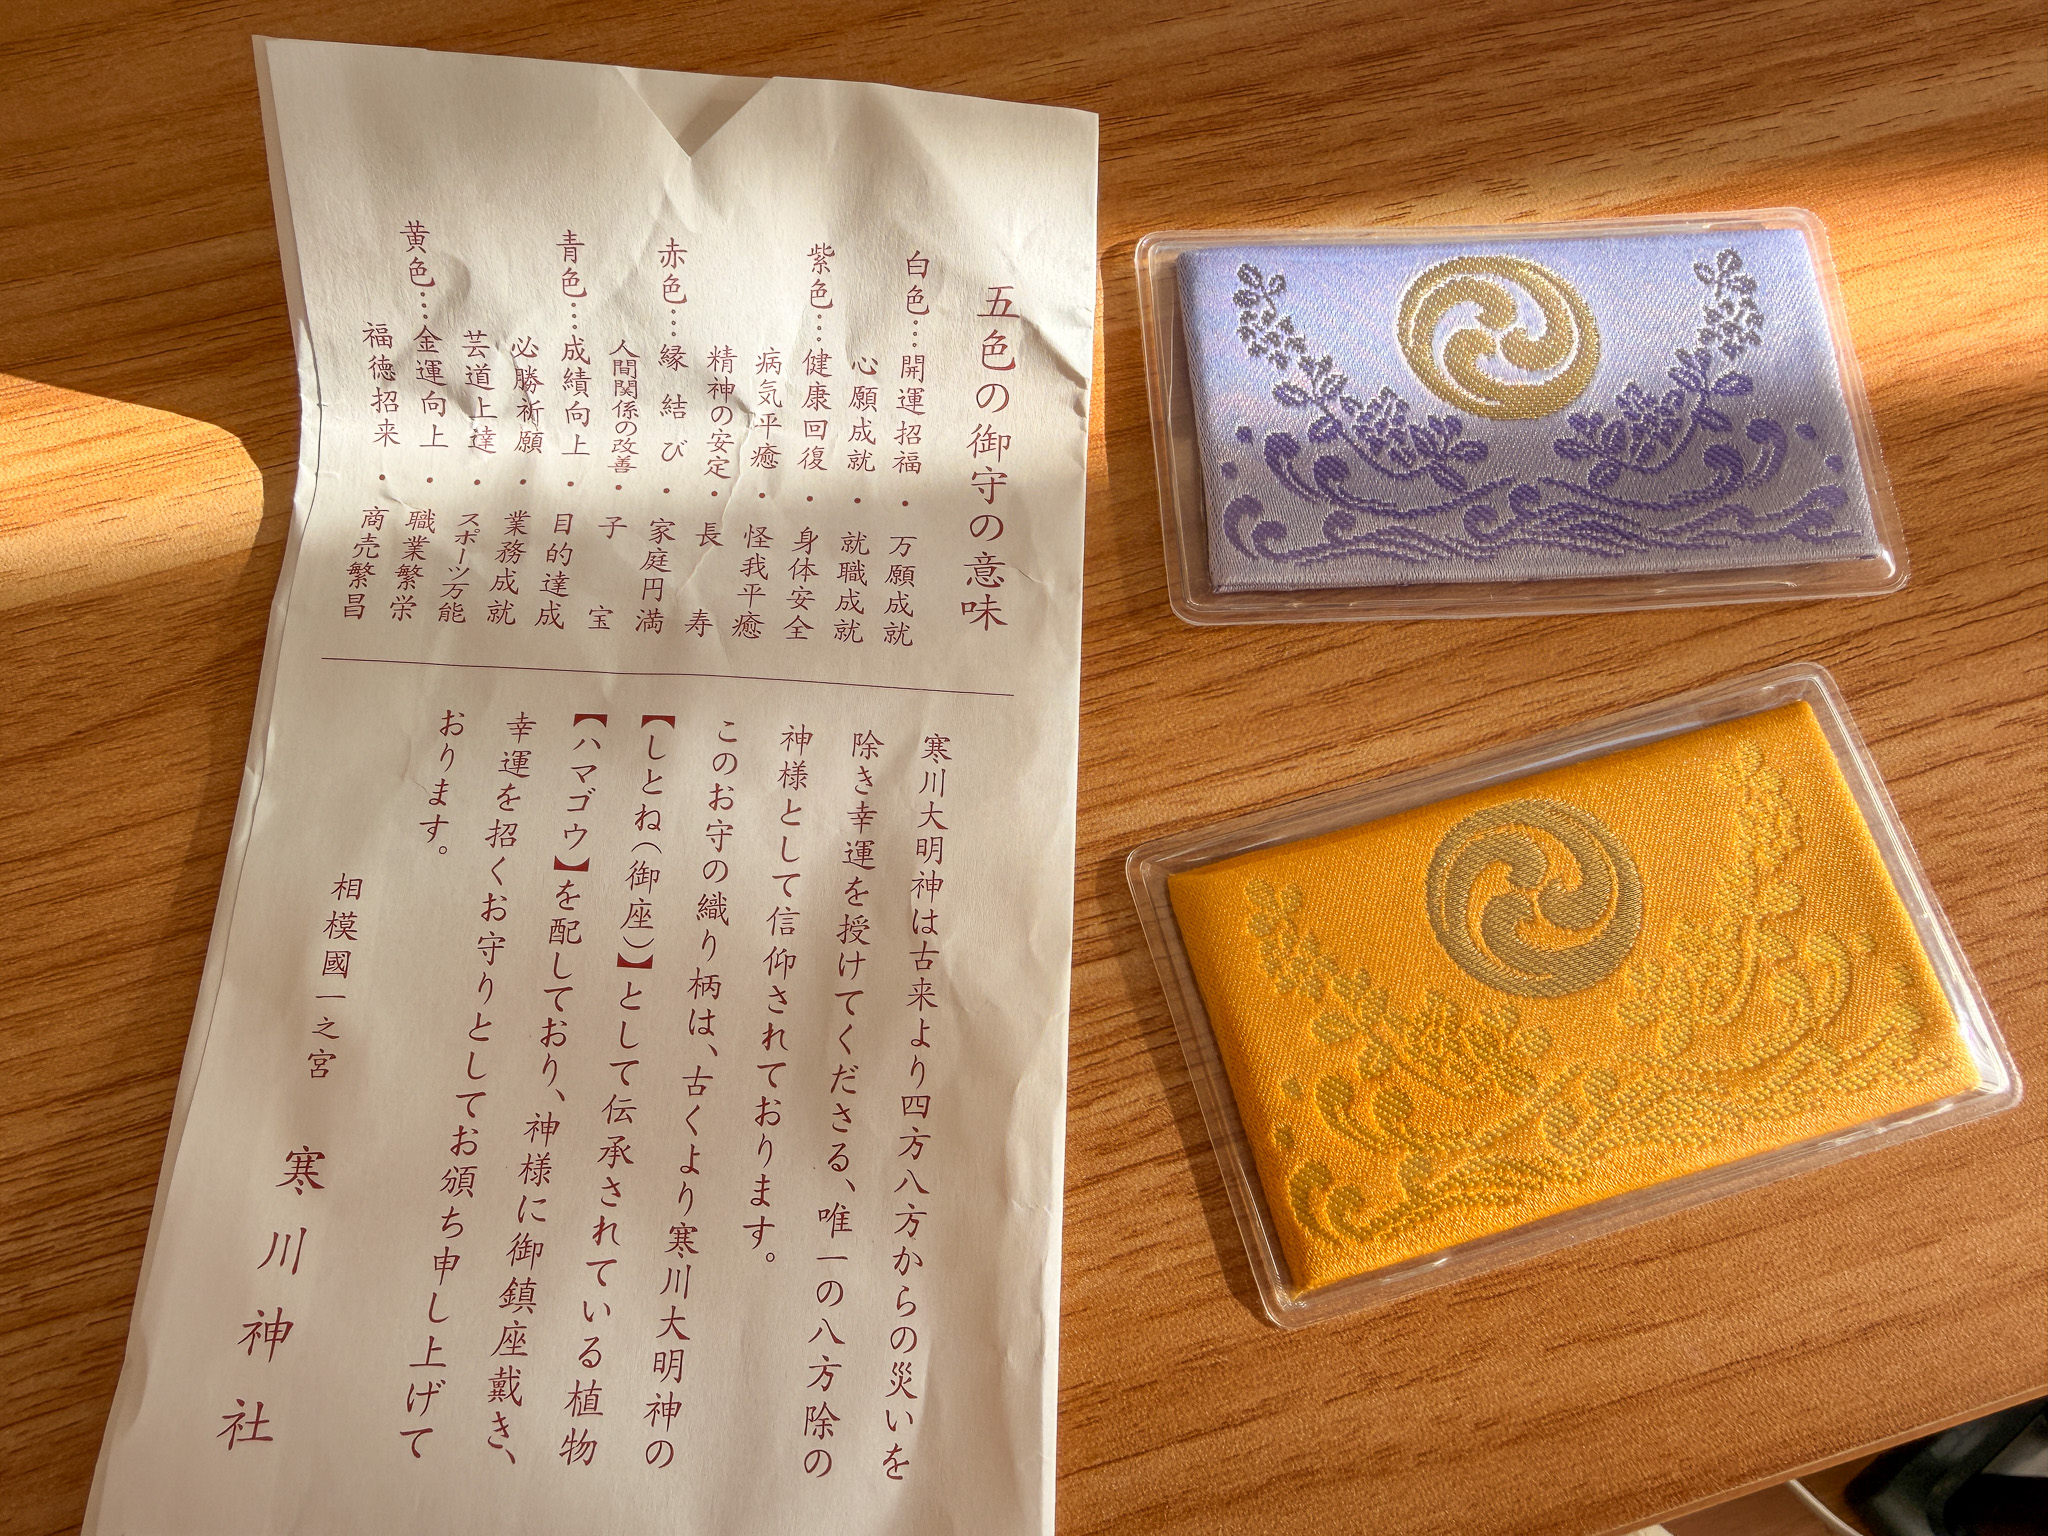 五色の御守の意味
白色…開運招福・万願成就
心願成就・就職成就
紫色…健康回復・身体安全
病気平癒・怪我平癒
精神の安定・長寿
赤色…縁結び・家庭円満
人間関係の改善・子宝
青色…成績向上・目的達成
必勝祈願・業務成就
芸道上達・スポーツ万能
黄色…金運向上・職業繁栄
福徳招来・商売繁昌
寒川大明神は古来より四方八方からの災いを
除き幸運を授けてくださる、唯一の八方除の
神様として信仰されております。
このお守の織り柄は、古くより寒川大明神の
【しとね（御座）】として伝承されている植物
【ハマゴウ】を配しており、神様に御鎮座戴き、
幸運を招くお守りとしてお頒ち申し上げて
おります。
相模國一之宮
寒川神社